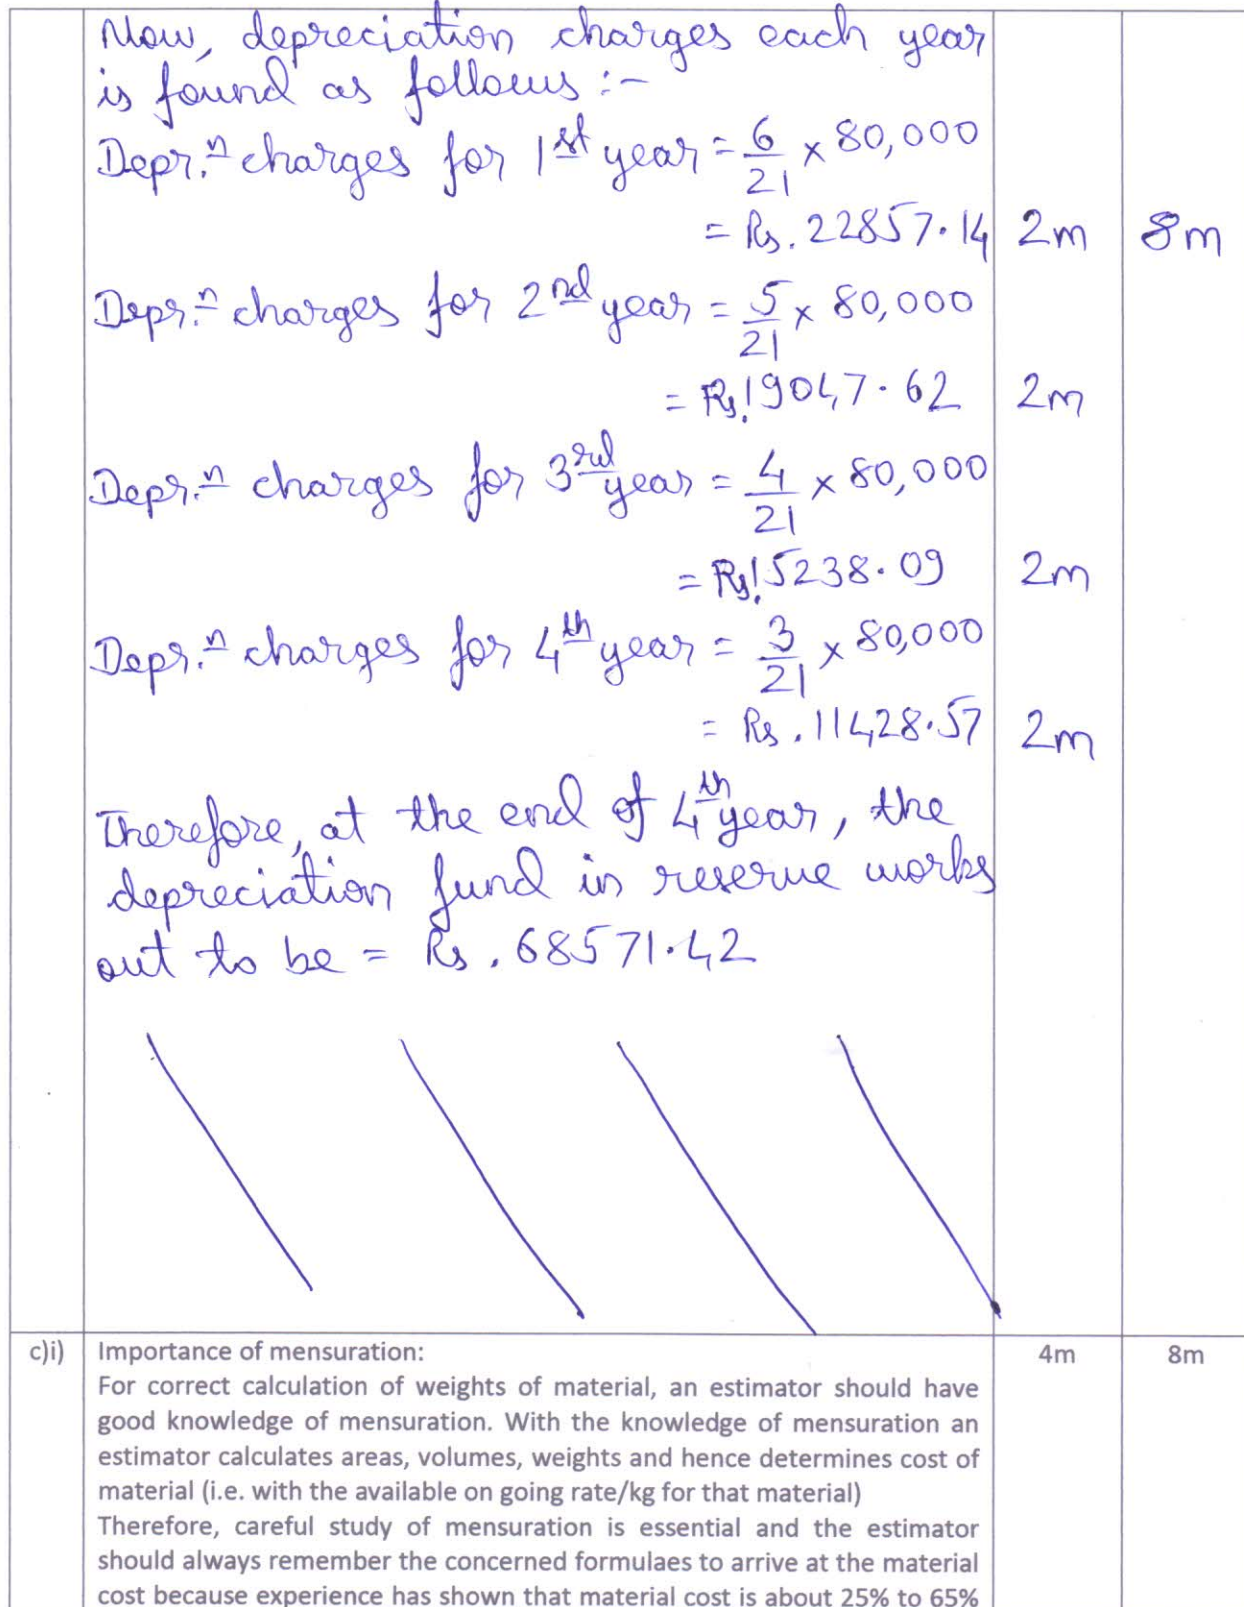 Now, depreciation charges each year
is found as follows :-
Depr.n charges for 1st year = 6/21 × 80,000
= Rs. 22857.14 2m 8m
Depr.n charges for 2nd year = 5/21 × 80,000
= Rs.19047.62 2m
Depr.n charges for 3rd year = 4/21 × 80,000
= Rs.15238.09 2m
Depr.n charges for 4th year = 3/21 × 80,000
= Rs. 11428.57 2m
Therefore, at the end of 4th year, the
depreciation fund in reserve works
out to be = Rs. 68571.42
c)i) Importance of mensuration: 4m 8m
For correct calculation of weights of material, an estimator should have
good knowledge of mensuration. With the knowledge of mensuration an
estimator calculates areas, volumes, weights and hence determines cost of
material (i.e. with the available on going rate/kg for that material)
Therefore, careful study of mensuration is essential and the estimator
should always remember the concerned formulaes to arrive at the material
cost because experience has shown that material cost is about 25% to 65%